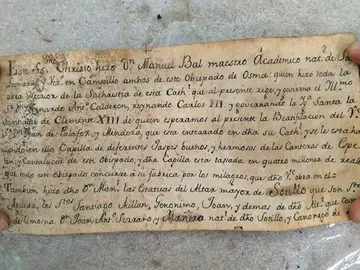 Este Sto. Christo hizo Dn. Manuel Bal maestro Academico nat. de San
Bernardo y Vez. en Campillo ambos de este Obispado de Osma: quien hizo toda la
obra interior de la Sachristia de esta Cath. que al presente rige, y govierna el Illmo.
Sr. Dn. Bernardo Ant. Calderon, reynando Carlos III, y governando la Sta. Santa la
Santidad de Clemente XIII de quien esperamos al presente la Beatificacion del Ve.
Sr. Dn. Juan de Palafox, y Mendoza, que esta enterado en dha su Cath. y se le esta ha
ciendo en ella Capilla de diferentes Jaspes buenos, y hermosos de las Canteras de Espe
jon y Cantalucia de este obispado, y dha Capilla esta tasada en quatro millones de reales
que todo este obispado concurre a su fabrica por los milagros, que dho Ve. obra en el
Tambien hizo dho Dn. Man. las Gracias del Altar mayor de Sotillo que son Sta.
Agueda, los Stos. Santiago, Millan, Geronimo, Joan, y demas de dho Alt. que costeo
de limosna Dn. Joan Ant. Serrano, y Mañero nat. de dho Sotillo, y Canonigo de